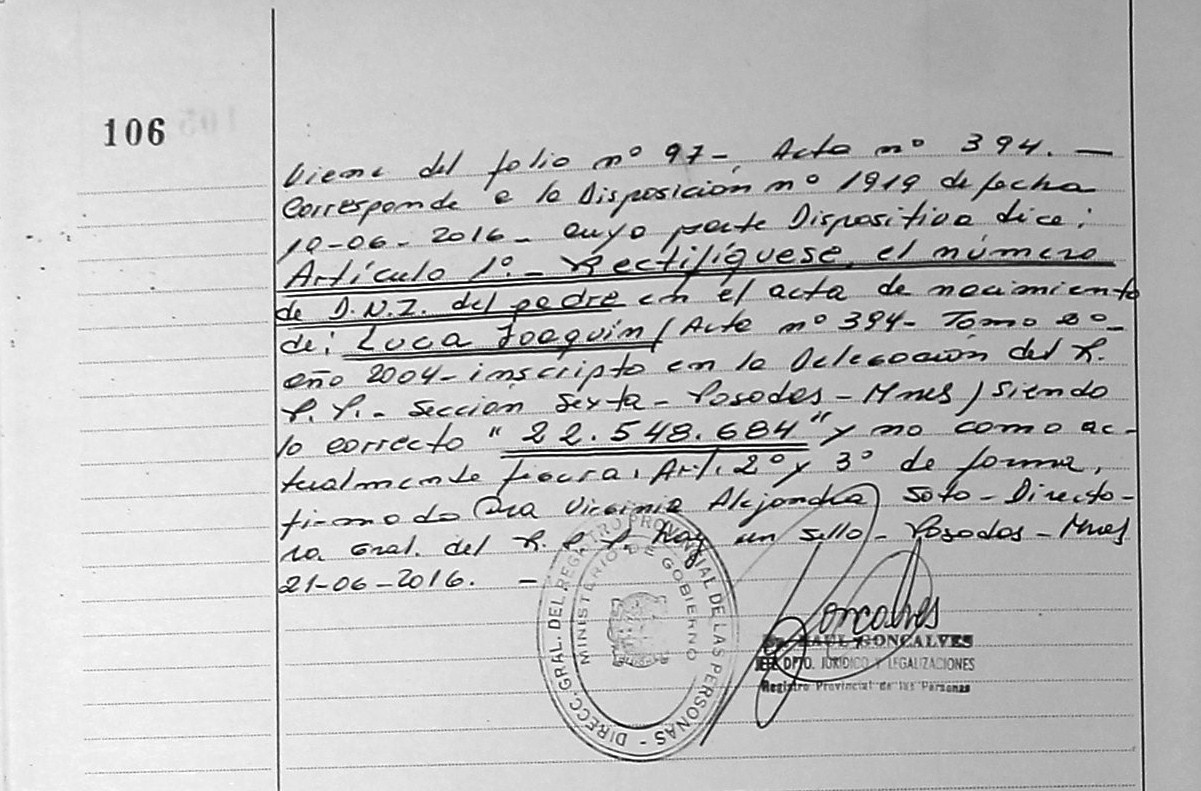 106
Viene del folio nº 97-, Acta nº 394. —
Corresponde a la Disposición nº 1919 de fecha
10-06-2016- cuya parte Dispositiva dice:
Artículo 1º.- Rectifíquese, el número
de D.N.I. del padre en el acta de nacimiento
de: Luca Joaquín / Acta nº 394- Tomo 2º-
año 2004- inscripto en la Delegación del R.
P. P.- Sección Sexta- Posadas- Mnes / siendo
lo correcto "22.548.684" y no como ac-
tualmente figura. Art. 2º y 3º de forma,
firmado Dra Virginia Alejandra Soto- Directo-
ra Gral. del R. P. P Hay un sello- Posadas- Mnes
21-06-2016. —
DIRECC. GRAL. DEL REGISTRO PROVINCIAL DE LAS PERSONAS -
MINISTERIO DE GOBIERNO
Goncalves
Dr. RAUL GONCALVES
JEFE DPTO. JURIDICO Y LEGALIZACIONES
Registro Provincial de las Personas